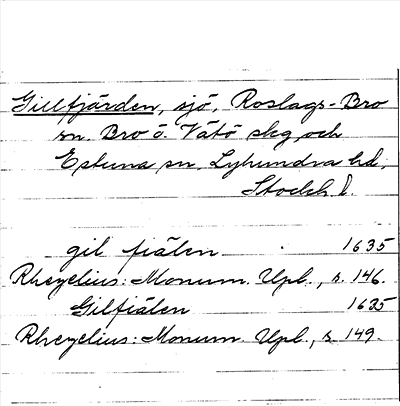 Gillfjärden, sjö, Roslags-Bro
sn. Bro o. Vätö skg och
Estuna sn. Lyhundra hd.
Stockh. l.
gil fiälen 1635
Rhezelius: Monum. Upl., s. 146.
Gilfiälen 1635
Rhezelius: Monum. Upl., s. 149.